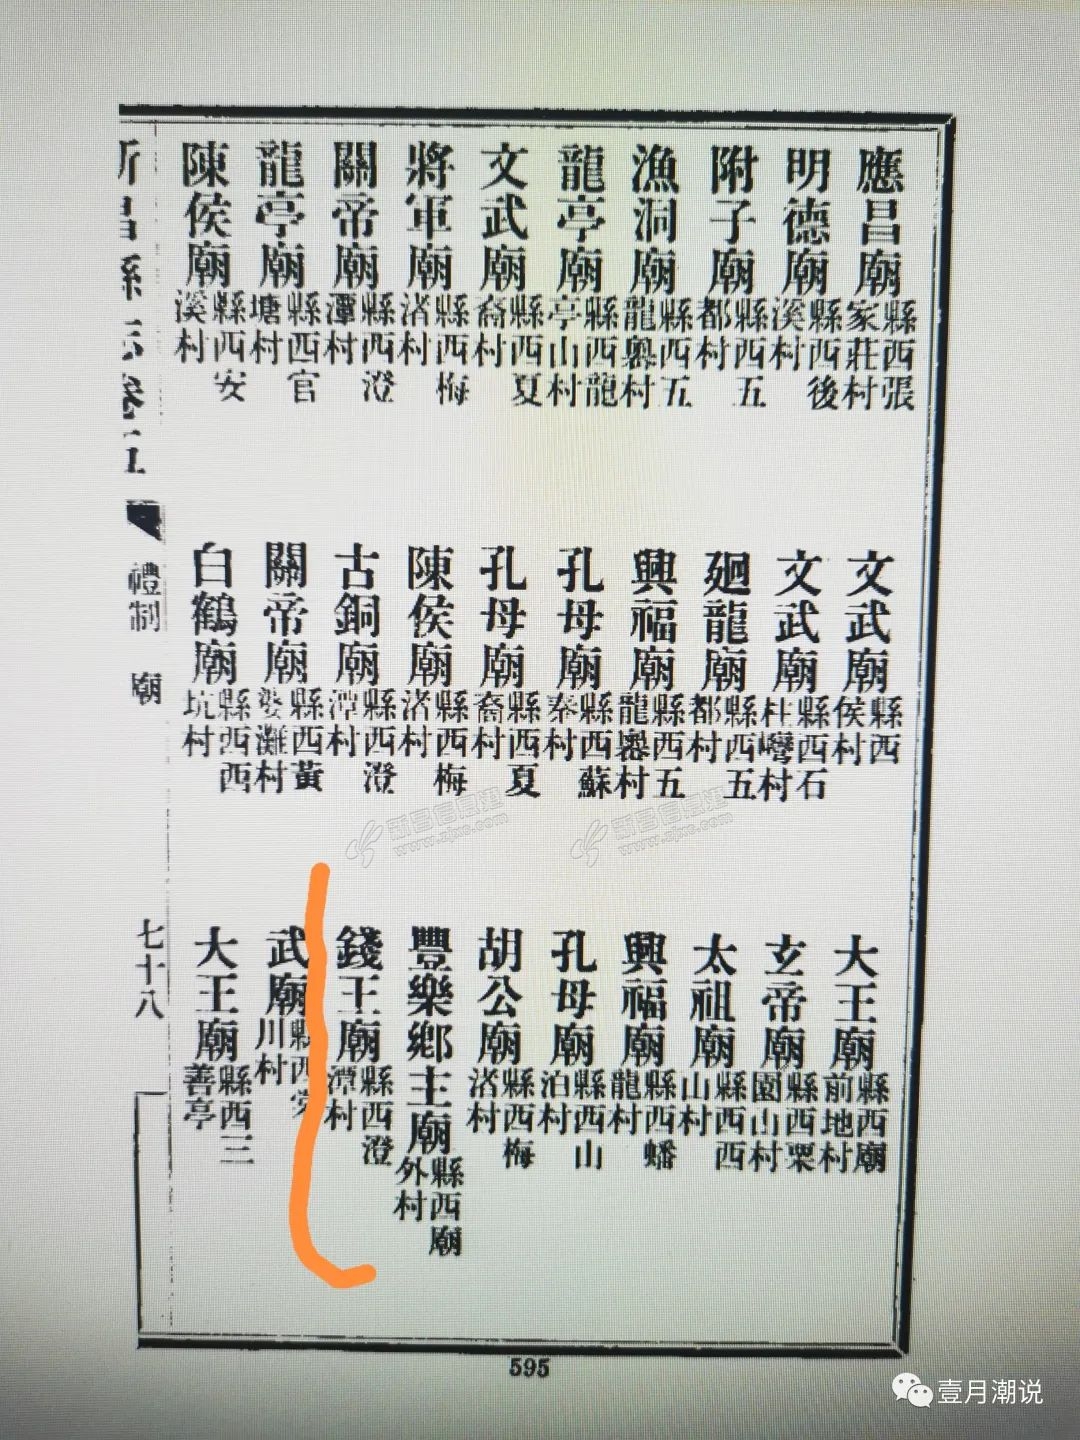 應昌廟 縣西張家莊村
文武廟 縣西侯村
大王廟 縣西廟前地村
明德廟 縣西後溪村
文武廟 縣西石柱彎村
玄帝廟 縣西栗園山村
附子廟 縣西五都村
廻龍廟 縣西五都村
太祖廟 縣西西山村
漁洞廟 縣西五龍嶴村
興福廟 縣西五龍嶴村
興福廟 縣西蟠龍村
龍亭廟 縣西龍亭山村
孔母廟 縣西蘇秦村
孔母廟 縣西山泊村
文武廟 縣西夏裔村
孔母廟 縣西夏裔村
胡公廟 縣西梅渚村
將軍廟 縣西梅渚村
陳侯廟 縣西梅渚村
豐樂鄉主廟 縣西廟外村
關帝廟 縣西澄潭村
古銅廟 縣西澄潭村
錢王廟 縣西澄潭村
龍亭廟 縣西官塘村
關帝廟 縣西黃婆灘村
武廟 縣西安川村
陳侯廟 縣西安溪村
白鶴廟 縣西西坑村
大王廟 縣西三善亭
新昌縣志卷五
禮制 廟
七十八
595
www.zjxc.com
www.zjxc.com
壹月潮说